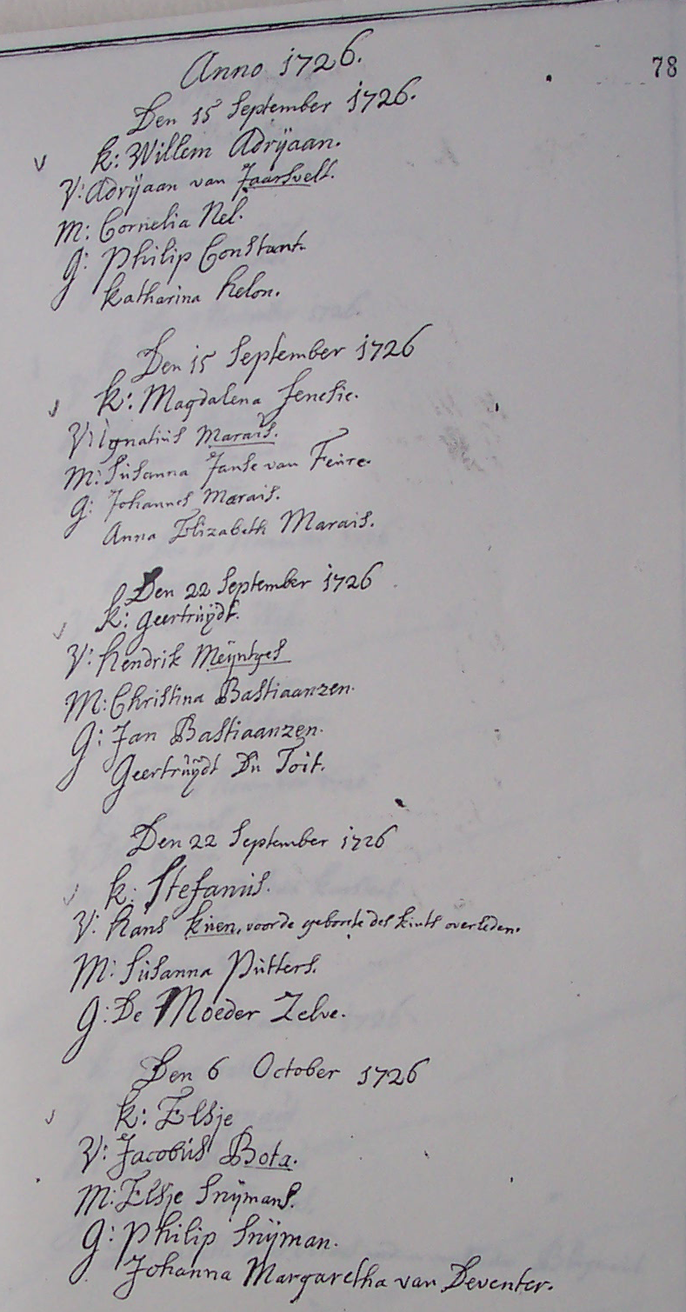 78
Anno 1726.
Den 15 September 1726.
k: Willem Adrijaan.
V: Adrijaan van Jaarsvelt.
M: Cornelia Nel.
G: Philip Constant.
Katharina Kelon.
Den 15 September 1726
k: Magdalena
V: Ignatius Marais.
M: Susanna Janse van
G: Johannes Marais.
Anna Elizabeth Marais.
Den 22 September 1726
k: geertruÿdt.
V: Hendrik Meÿntges
M: Christina Bastiaanzen.
G: Jan Bastiaanzen.
Geertruÿdt Du Toit.
Den 22 September 1726
k: Stefanus.
V: Hans voor de geboorte des kints overleden.
M: Susanna Putters.
G: De Moeder Zelve.
Den 6 October 1726
k: Elsje
V: Jacobus Bota.
M: Elsje Snÿmans.
G: Philip Snÿman.
Johanna Margaretha van Deventer.